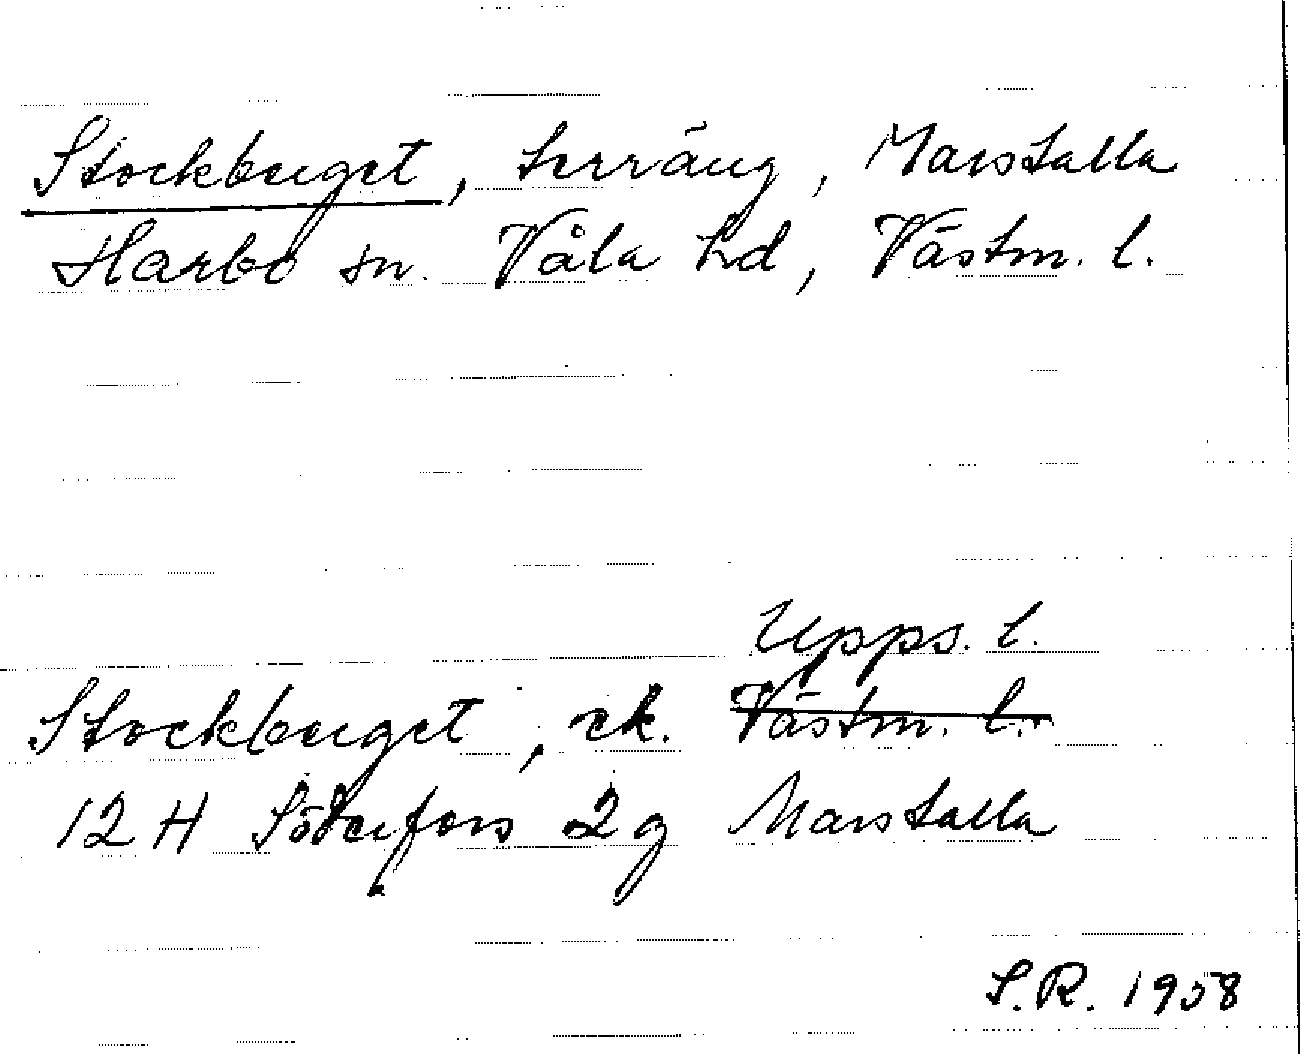 Stockberget, terräng, Marstalla
Harbo sn. Våla hd, Västm. l.
Upps. l.
Stockberget, ek. Västm. l.
12 H Söderfors 2 g Marstalla
S.R. 1958